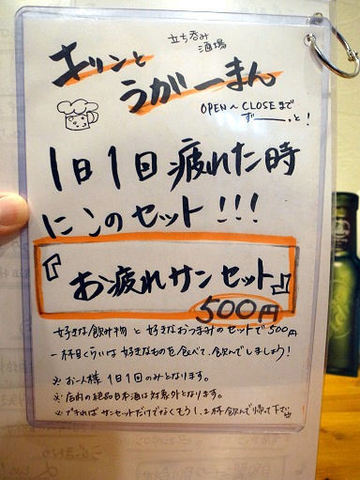 立ち呑み
酒場
ホリンと
うがーまん
OPEN～CLOSEまで
ずーーっと！
1日1回疲れた時
にこのセット!!!
『お疲れサンセット』
500円
好きな飲み物と好きなおつまみのセットで500円
一杯目くらいは好きなものを食べて、飲んでしましょう！
※お一人様1日1回のみとなります。
※店内の絶品日本酒は対象外となります。
※できればサンセットだけでなくもう1、2杯飲んで帰って下さい